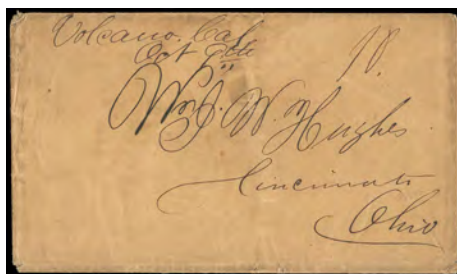 Volcano. Cal
Oct 9th
10.
Wm J. W. Hughes
Cincinnati
Ohio